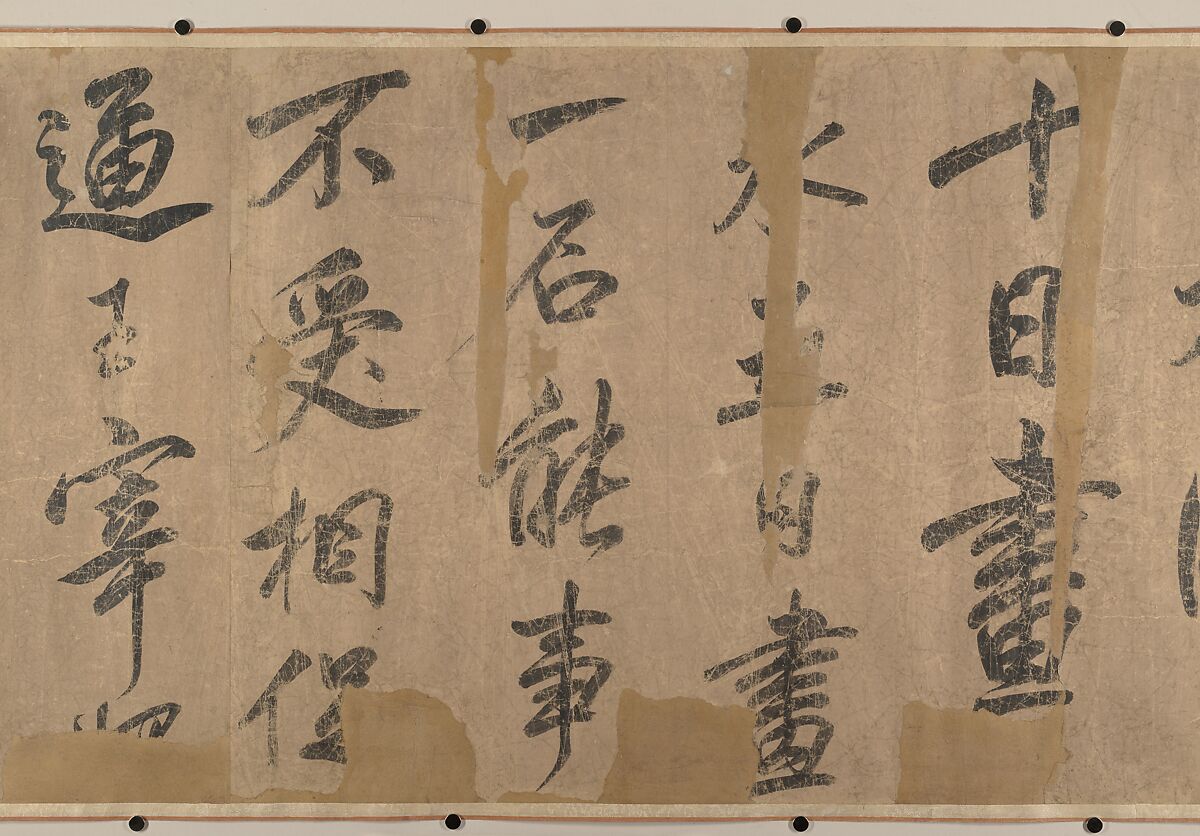 十日畫
水五日畫
一石能事
不受相促
逼王宰